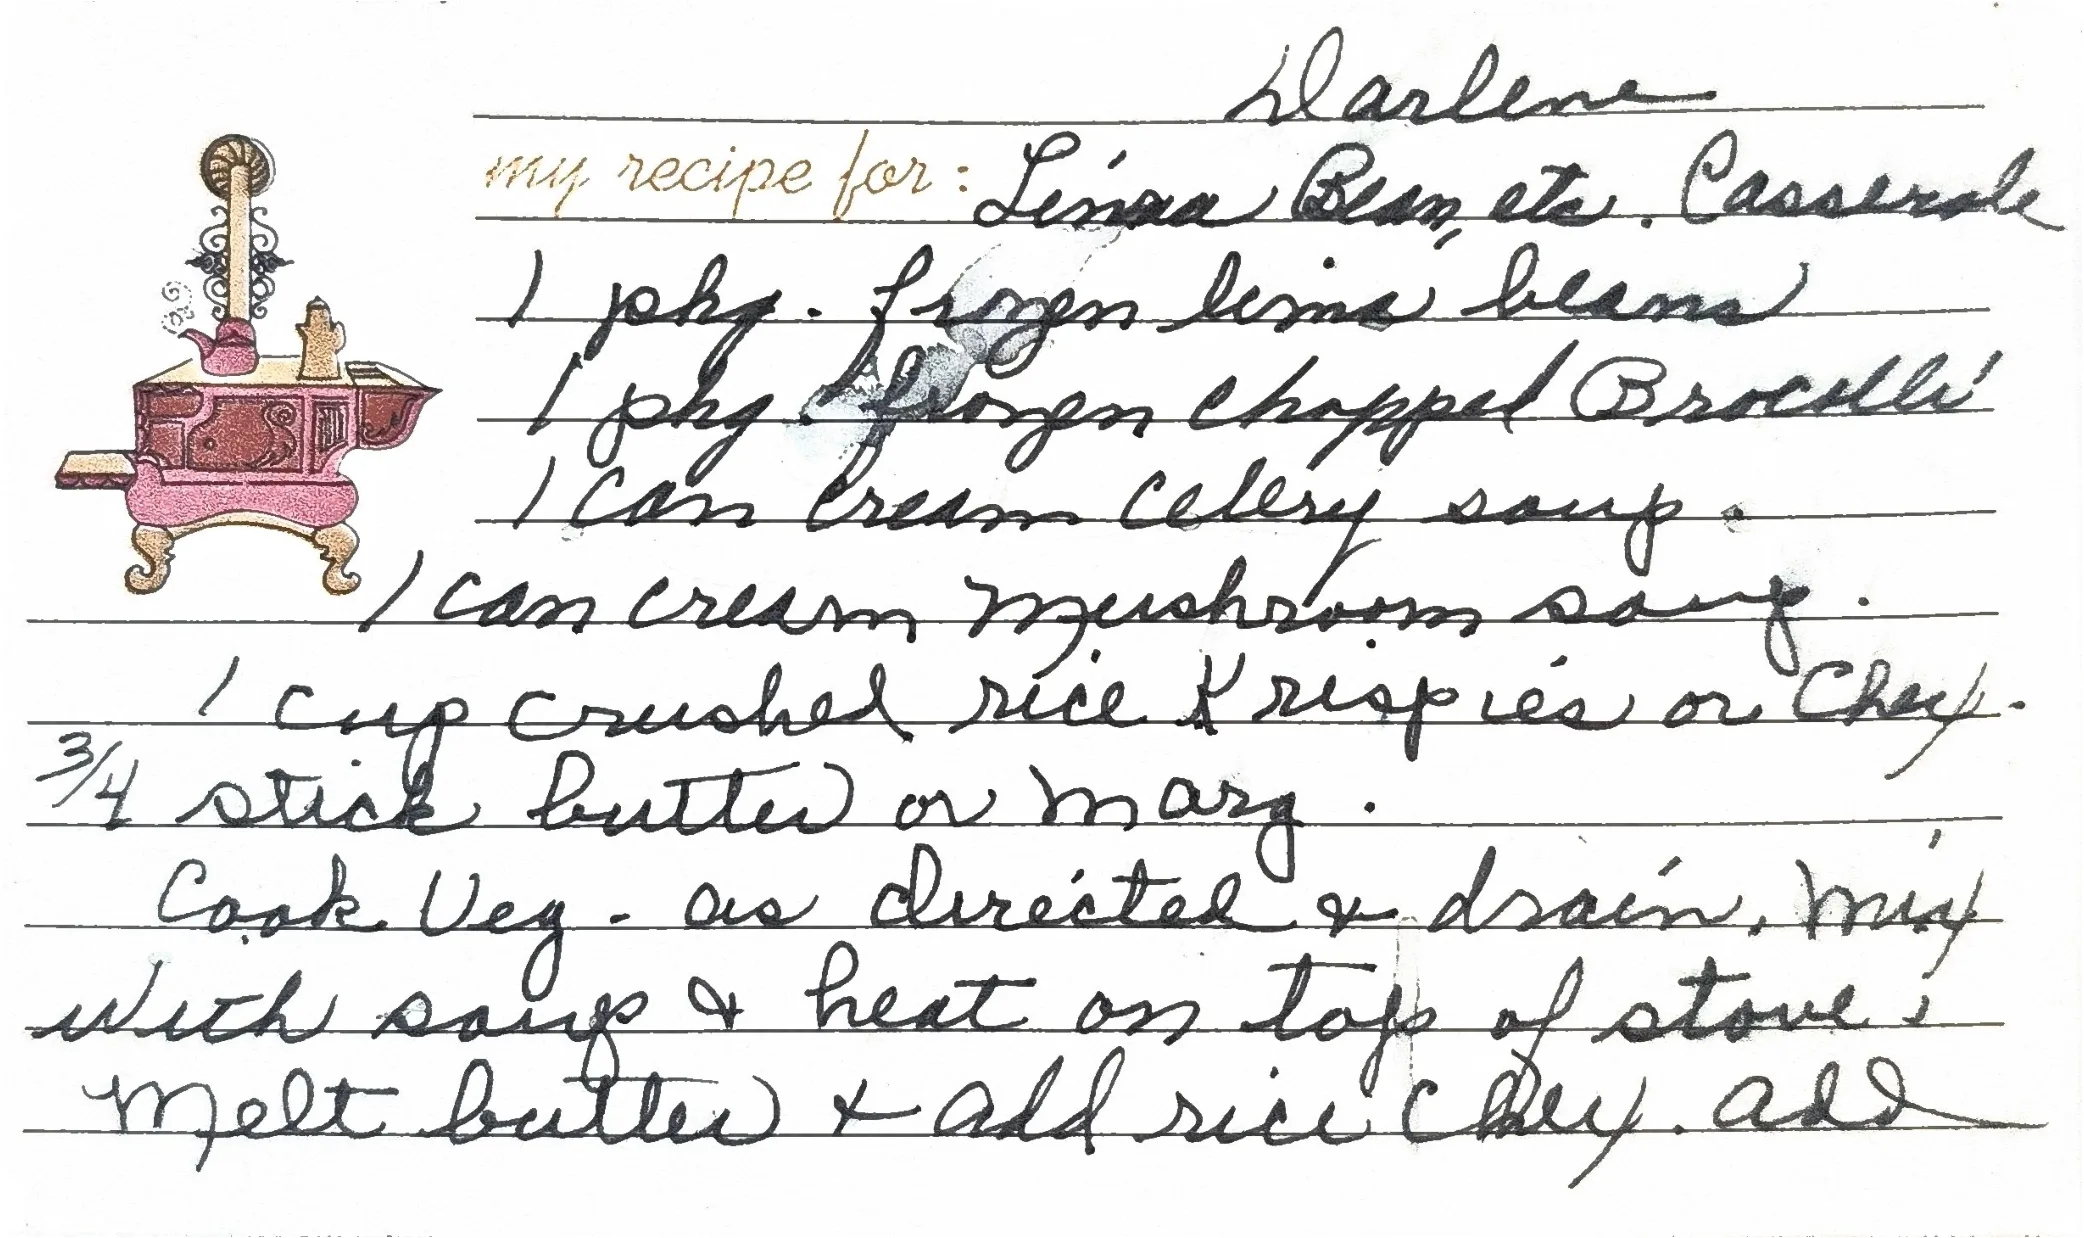 Darlene
my recipe for: Lima Bean, etc. Casserole
1 pkg. frozen lima beans
1 pkg frozen chopped Brocolli
1 can cream celery soup.
1 can cream mushroom soup.
1 cup crushed rice Krispies or Chex.
3/4 stick butter or marg.
Cook Veg. as directed & drain. Mix
with soup & heat on top of stove.
Melt butter & add rice Chex. add